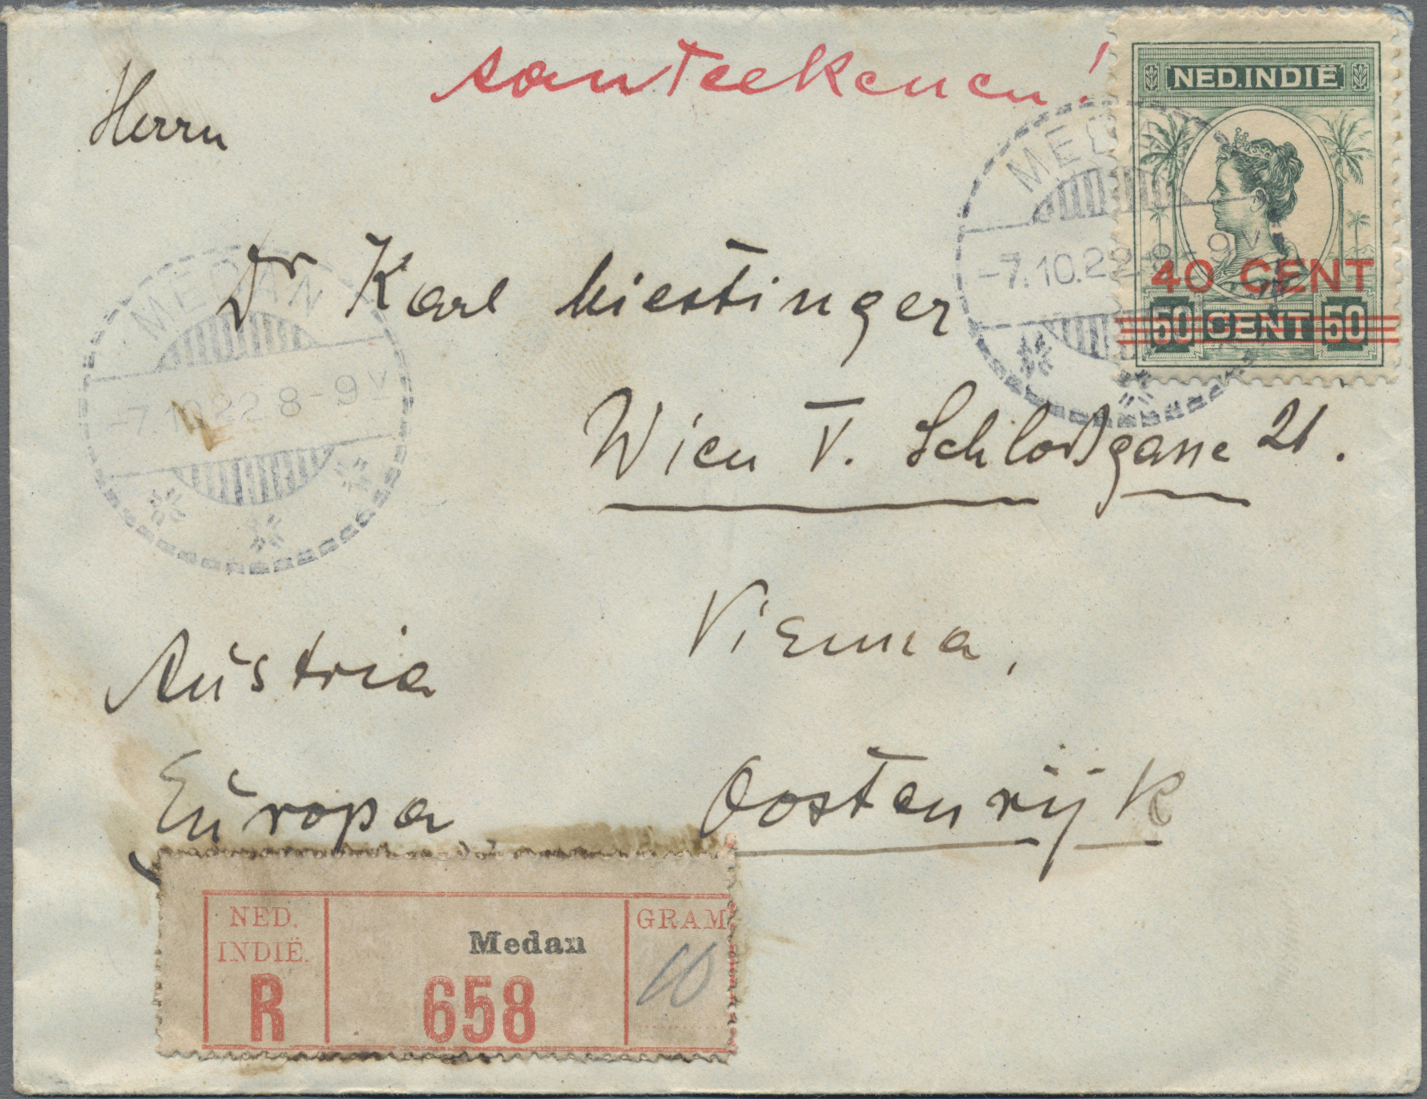 aanteekenen!
NED. INDIË
40 CENT
50 CENT 50
MEDAN
-7.10.22 8-9V
MEDAN
-7.10.22 8-9V
Herrn
Dr Karl Kiestinger
Wien V. Schloßgasse 21.
Vienna,
Austria
Europa
Oostenrijk
NED. INDIË.
R
Medan
658
GRAM
10